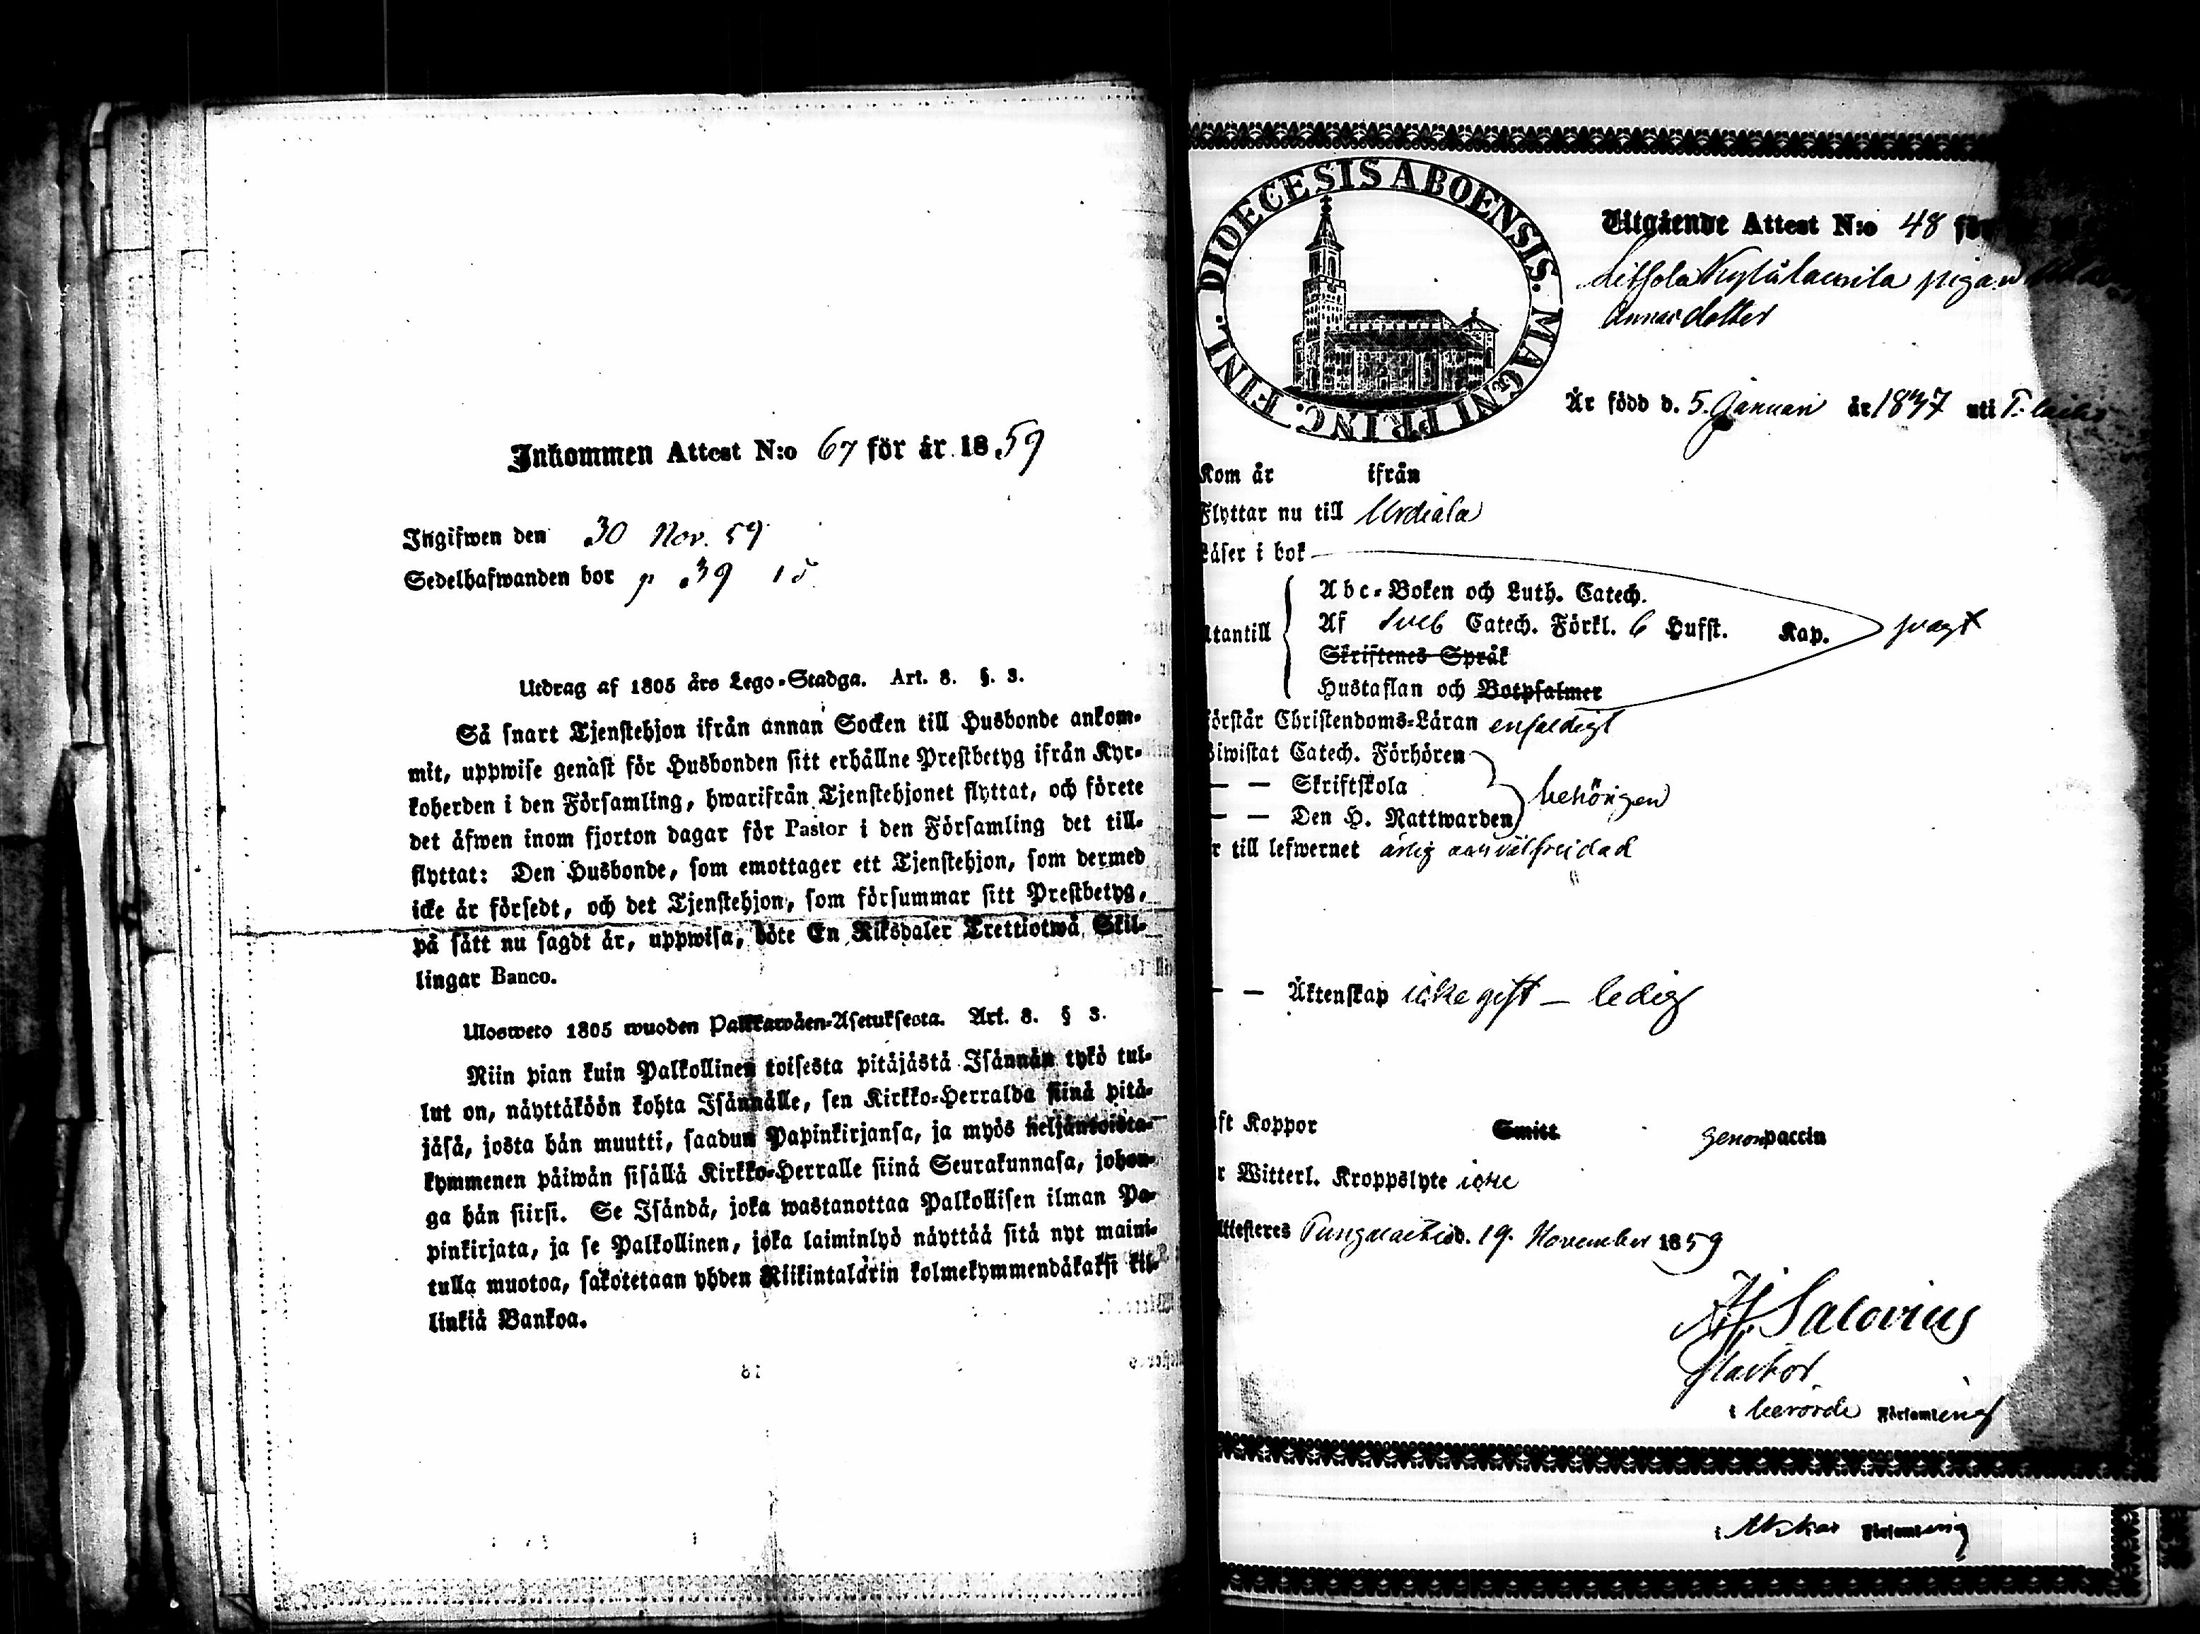 Inkommen Attest N:o 67 för år 1859
Ingifwen den 30 Nov. 59
Sedelhafwanden bor p 39 15
Utdrag af 1805 års Lego-Stadga. Art. 8. §. 3.
Så snart Tjenstehjon ifrån annan Socken till Husbonde ankom-
mit, uppwise genast för Husbonden sitt erhållne Prestbetyg ifrån Kyr-
koherden i den Församling, hwarifrån Tjenstehjonet flyttat, och förete
det äfwen inom fjorton dagar för Pastor i den Församling det till-
flyttat: Den Husbonde, som emottager ett Tjenstehjon, som dermed
icke är försedt, och det Tjenstehjon, som försummar sitt Prestbetyg,
på sätt nu sagdt är, uppwisa, böte En Riksdaler Trettiotwå Skil-
lingar Banco.
Ulosweto 1805 wuoden Palkkawäen-Asetuksesta. Art. 8. § 3.
Niin pian kuin Palkollinen toisesta pitäjästä Isännän tykö tul-
lut on, näyttäköön kohta Isännälle, sen Kirkko-Herralda siinä pitä-
jäsä, josta hän muutti, saadun Papinkirjansa, ja myös neljäntoista-
kymmenen päiwän sisällä Kirkko-Herralle siinä Seurakunnasa, johon-
ga hän siirsi. Se Isändä, joka wastanottaa Palkollisen ilman Pa-
pinkirjata, ja se Palkollinen, joka laiminlyö näyttää sitä nyt maini-
tulla muotoa, sakotetaan yhden Riikintalarin kolmekymmendäkaksi kil-
linkiä Bankoa.
DIOECESIS ABOENSIS. MAGNI PRINC. FINL.
Utgående Attest N:o 48 för
pigan
Annasdotter
Är född d. 5. Januari år 1837 uti
Kom år ifrån
Flyttar nu till Urdiala
Läser i bok
Utantill
Abc-Boken och Luth. Catech.
Af Sveb Catech. Förkl. 6 Hufst. Kap. svagt
Skriftenes Språk
Hustaflan och Botpsalmer
Förstår Christendoms-Läran enfaldigt
Biwistat Catech. Förhören
— — Skriftskola behörigen
— — Den H. Nattwarden
Är till lefwernet ärlig och välfrejdad
— — Äktenskap icke gift — ledig
Haft Koppor Smitt genom vaccin
Har Witterl. Kroppslyte icke
Attesteres Pungalaitio d. 19. November 1859
Salovius
Pastor
i berörde Församling
i Akkas Församling